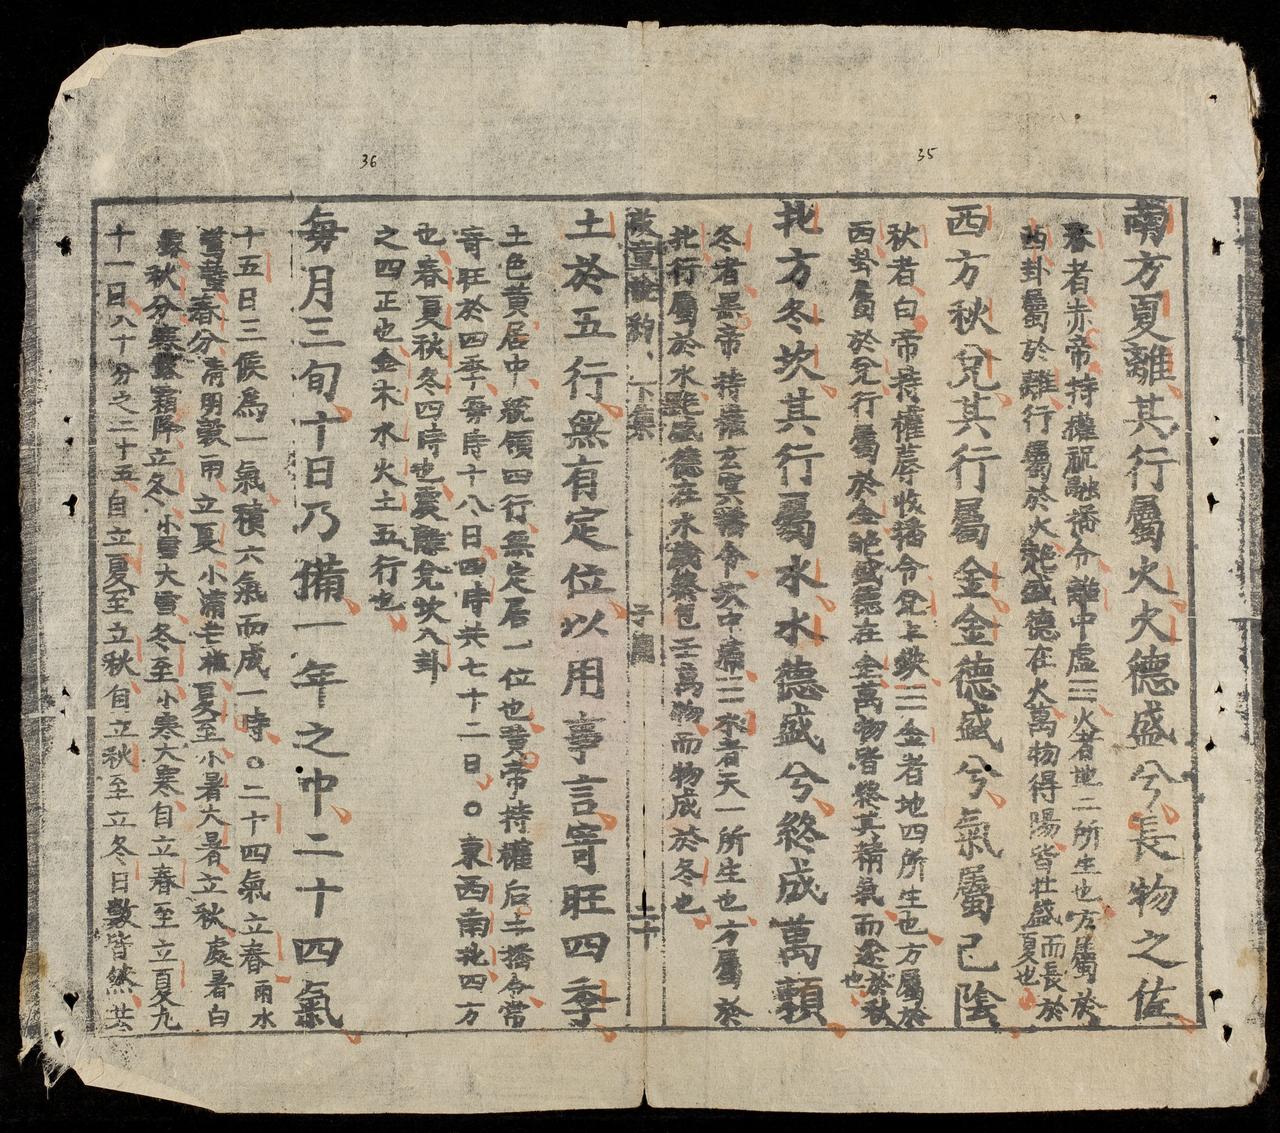 35
南方夏離其行屬火火德盛兮長物之佐
春者赤帝持權祝融播令離中虛三火者地二所生也方屬於
西卦屬於離行屬於火盛德在火萬物得陽皆壮盛而長於夏也
西方秋兌其行屬金金德盛兮氣屬已陰
秋者白帝持權蓐收播令兌上缺三金者地四所生也方屬於
西卦屬於兌行屬於金盛德在金萬物者終其精氣而遂於秋也
北方冬坎其行屬水水德盛兮終成萬類
冬者黑帝持權玄冥播令坎中滿三水者天一所生也方屬於
北行屬於水盛德在水萬物而物成於冬也
下集
二十
土於五行無有定位以用事言寄旺四季
土色黄居中統領四行無定居一位也黄帝持權后土播令常
寄旺於四季每時十八日四時共七十二日〇東西南北四方
也春夏秋冬四時也震離兌坎八卦
之四正也金木水火土五行也
36
每月三旬十日乃備一年之中二十四氣
十五日三候為一氣積六氣而成一時〇二十四氣立春雨水
驚蟄春分清明穀雨立夏小滿芒種夏至小暑大暑立秋處暑白
露秋分寒露霜降立冬小雪大雪冬至小寒大寒自立春至立夏九
十一日八十分之二十五自立夏至立秋自立秋至立冬日數皆然